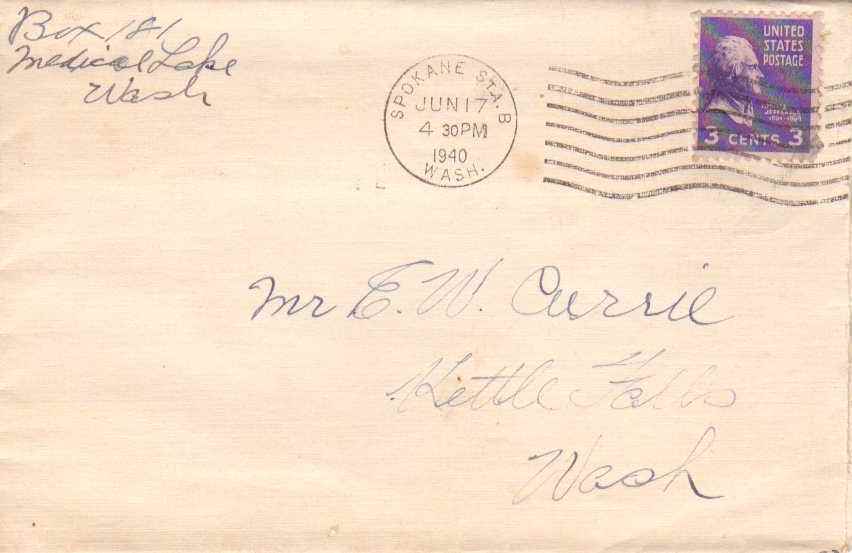 Box 181
Medical Lake
Wash
SPOKANE STA. B
JUN 17
4 30 PM
1940
WASH.
UNITED
STATES
POSTAGE
3 CENTS 3
Mr E. W. Currie
Kettle Falls
Wash